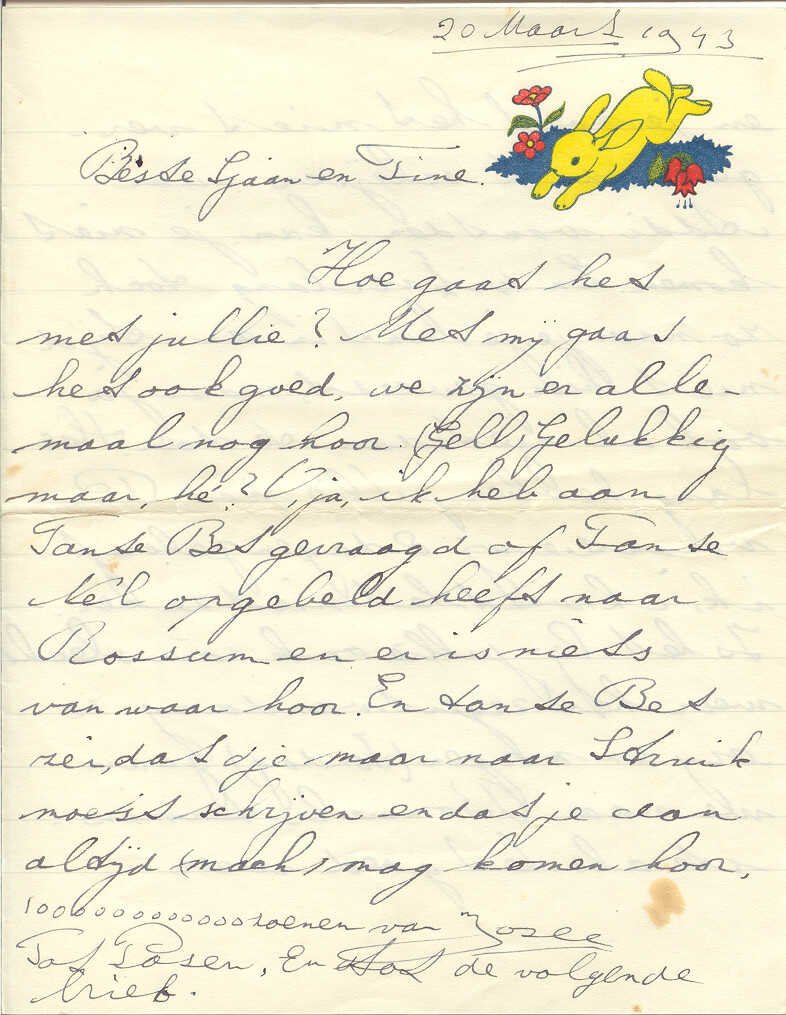 20 Maart 1943
Beste Sjaan en Tine.
Hoe gaat het
met jullie? Met mij gaat
het ook goed, we zijn er alle-
maal nog hoor. (Gell) Gelukkig
maar, hè? O, ja, ik heb aan
Tante Bet gevraagd of Tante
Nel opgebeld heeft naar
Rossum en er is niets
van waar hoor. En tante Bet
zei, dat je maar naar Struik
moest schrijven en dat je dan
altijd (mach) mag komen hoor,
1000000000000 zoenen van Zosee
Tot Pasen, En tot de volgende
brief.